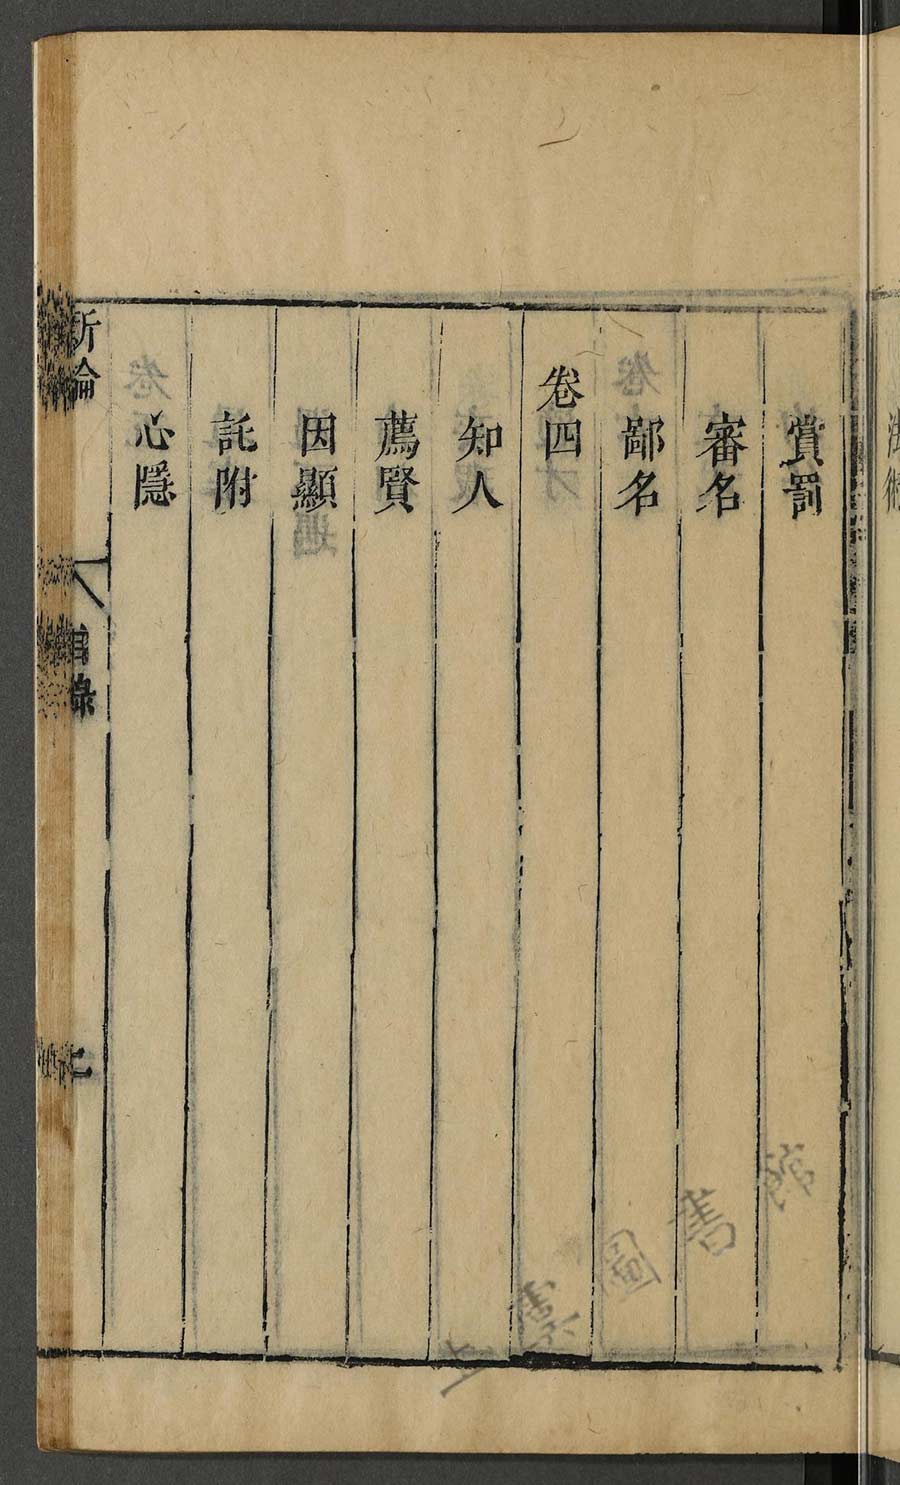 賞罰
審名
鄙名
卷四
知人
薦賢
因顯
託附
心隱
新論
目錄
二
圖書館